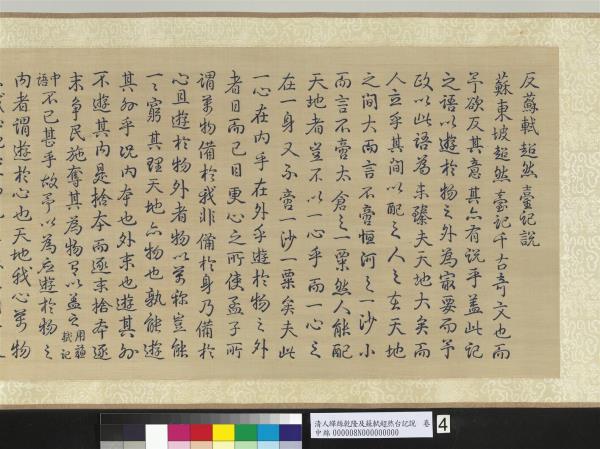 反蘇軾超然臺記說
蘇東坡超然臺記千古奇文也而
予欲反其意其亦有說乎蓋此記
之語以遊於物之外為最要而予
政以此語為未臻夫天地大矣而
人立乎其間以配之人之在天地
之間大而言不啻恒河之一沙小
而言不啻太倉之一粟然人能配
天地者豈不以一心乎而一心之
在一身又不啻一沙一粟矣夫此
一心在內乎在外乎遊於物之外
者目而已目更心之所使孟子所
謂萬物備於我非備於身乃備於
心且遊於物外者物以萬稱豈能
一一窮其理天地亦物也孰能遊
其外乎況內本也外末也遊其外
不遊其內是捨本而逐末捨本逐
末爭民施奪其為物有以蓋之用蘇軾記
中語不已甚乎故予以為應遊於物之
內者謂遊於心也天地我心萬物
清人緙絲乾隆反蘇軾超然台記說 卷
中絲 000008N000000000
4